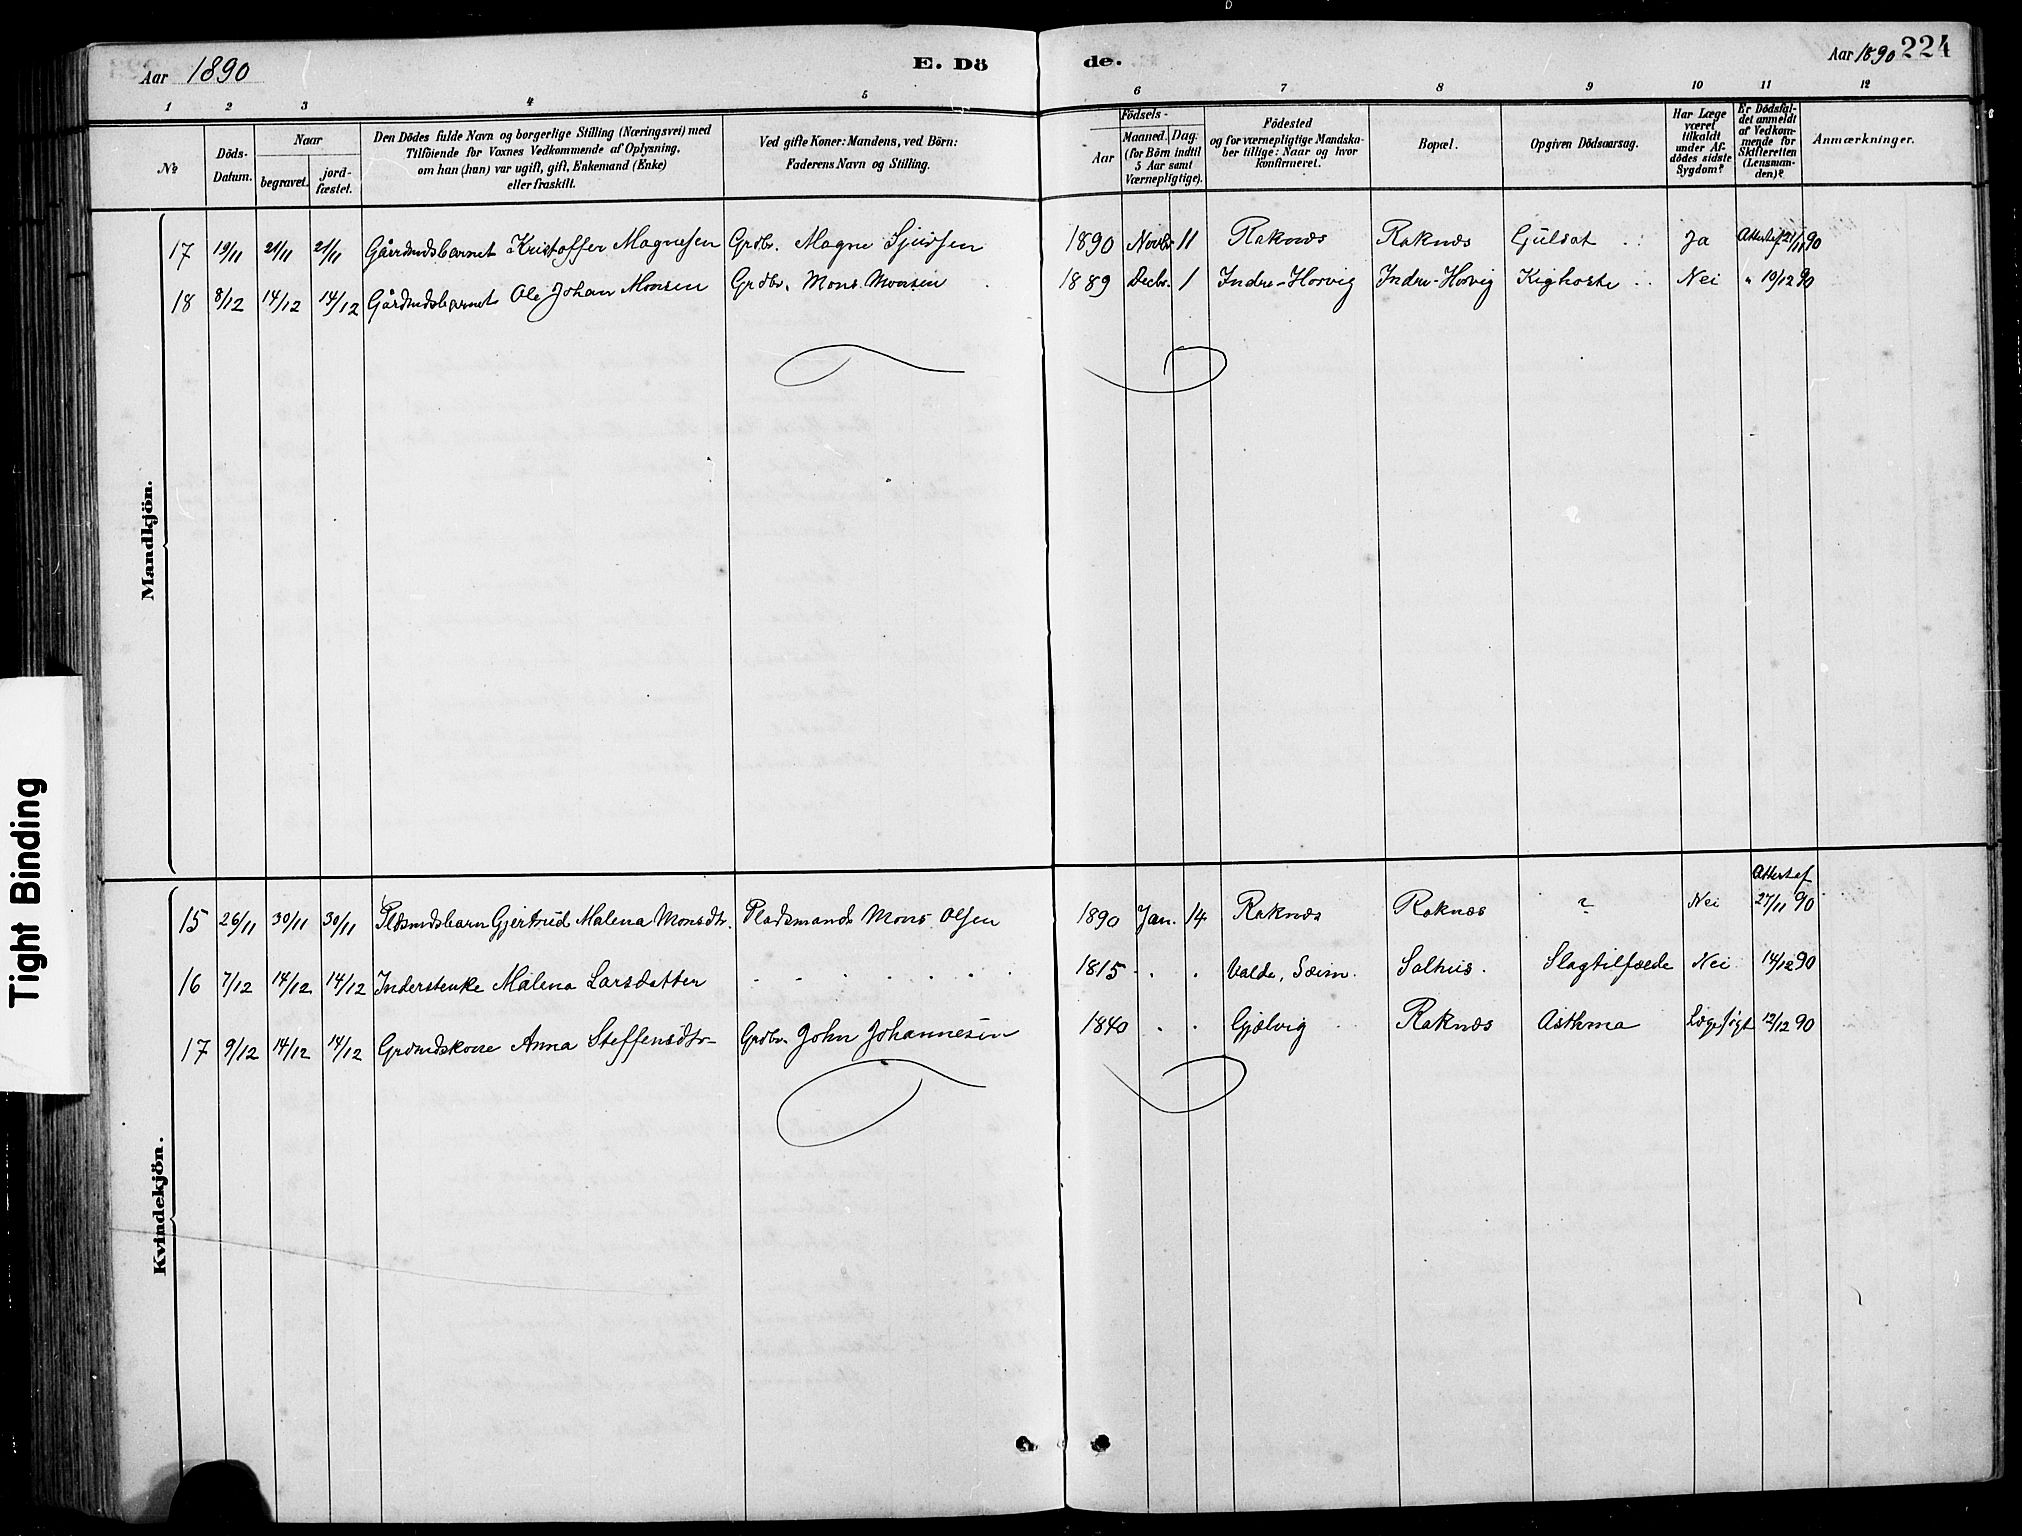 Aar 1890
E. Dö
de.
Aar 1890 224
1 2 3 4 5 6 7 8 9 10 11 12
№
Döds-Datum.
Naar
begravet.
jord-fæstet.
Den Dödes fulde Navn og borgerlige Stilling (Næringsvei) med
Tilföiende for Voxnes Vedkommende af Oplysning,
om han (hun) var ugift, gift, Enkemand (Enke)
eller fraskilt.
Ved gifte Koner: Mandens, ved Börn:
Faderens Navn og Stilling.
Födsels-
Aar
Maaned. Dag.
(for Börn indtil
5 Aar samt
Værnepligtige).
Födested
og for værnepligtige Mandska-
ber tillige: Naar og hvor
konfirmeret.
Bopæl.
Opgiven Dödsaarsag.
Har Læge
været
tilkaldt
under Af-
dödes sidste
Sygdom?
Er Dödsfal-
det anmeldt
af Vedkom-
mende for
Skifteretten
(Lensman-
den)?
Anmærkninger.
Mandkjön.
17 19/11 21/11 21/11 Gårdmdsbarnet Kristoffer Magnesen Grdbr. Magne Sjursen 1890 Novbr 11 Raknes Raknes Gulsot Ja Attest af 21/11 90
18 8/12 14/12 14/12 Gårdmdsbarnet Ole Johan Monsen Grdbr. Mons Monsen 1889 Decbr. 1 Indre-Horvig Indre-Horvig Kighoste Nei " 10/12 90
Kvindekjön.
15 26/11 30/11 30/11 Pldsmdsbarn Gjertrud Malena Monsdtr. Pladsmand Mons Olsen 1890 Jan. 14 Raknes Raknes ? Nei Attest af 27/11 90
16 7/12 14/12 14/12 Inderstenke Malena Larsdatter 1815 Valde, Sæim. Salhus. Slagtilfælde Nei 14/12 90
17 9/12 14/12 14/12 Grdmdskone Anna Steffensdtr Grdbr. John Johannesen 1840 Gjelvig Raknes Asthma Lægesøgt 12/12 90
Tight Binding